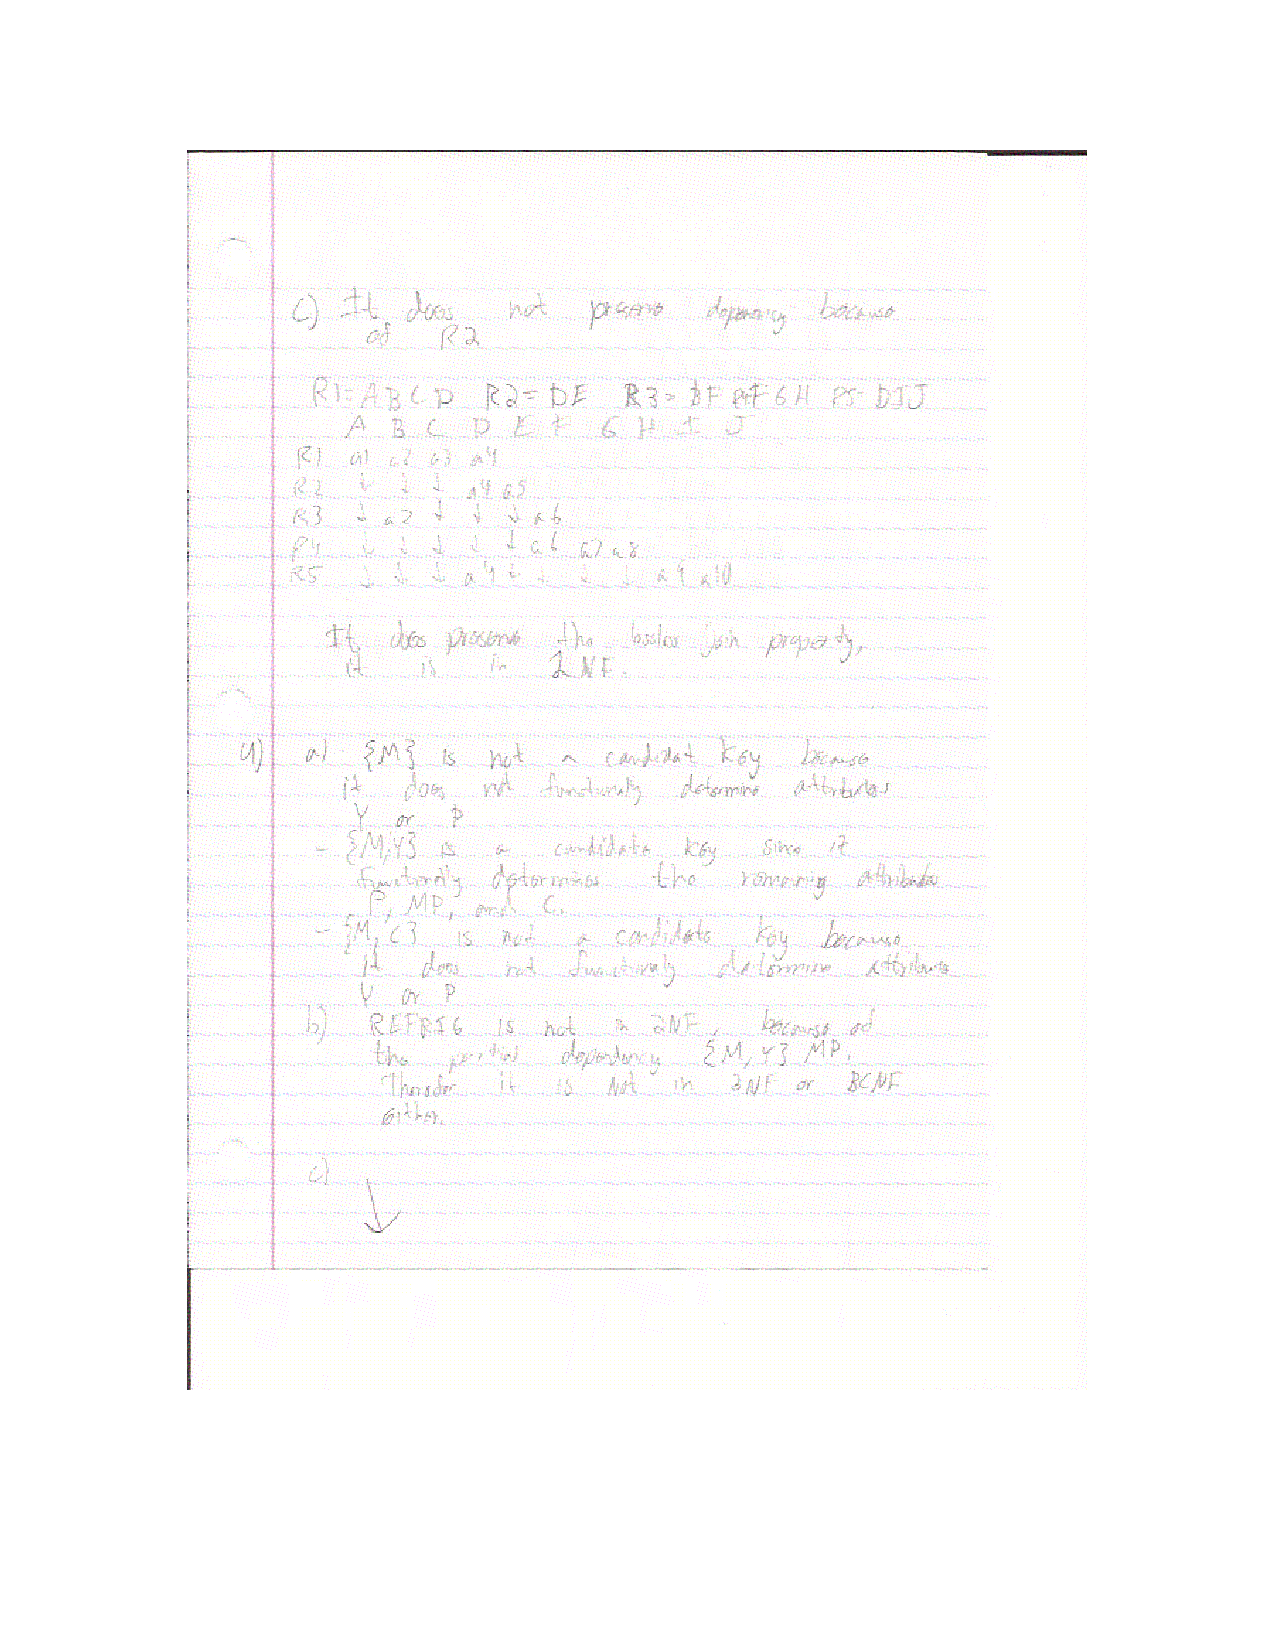 c) It does not preserve dependency because
of R2
R1=ABCD R2=DE R3= BF FGH R5= DIJ
A B C D E F G H I J
R1 a1 a2 a3 a4
R2 ↓ ↓ ↓ a4 a5
R3 ↓ a2 ↓ ↓ ↓ a6
R4 ↓ ↓ ↓ ↓ ↓ a6 a7 a8
R5 ↓ ↓ ↓ a4 ↓ ↓ ↓ ↓ a9 a10
It does preserve the lossless join property,
it is in 2NF.
4) a) - {M} is not a candidat key because
it does not functionaly determine attributes
Y or P
- {M,Y} is a candidate key since it
functionally determines the remaining attributes
P, MP, and C.
- {M, C} is not a candidate key because
it does not functionaly determine attributes
Y or P
b) REFRIG is not in 2NF, because of
the partial dependency {M, Y} MP.
it is not in 3NF or BCNF
either.
c)
↓